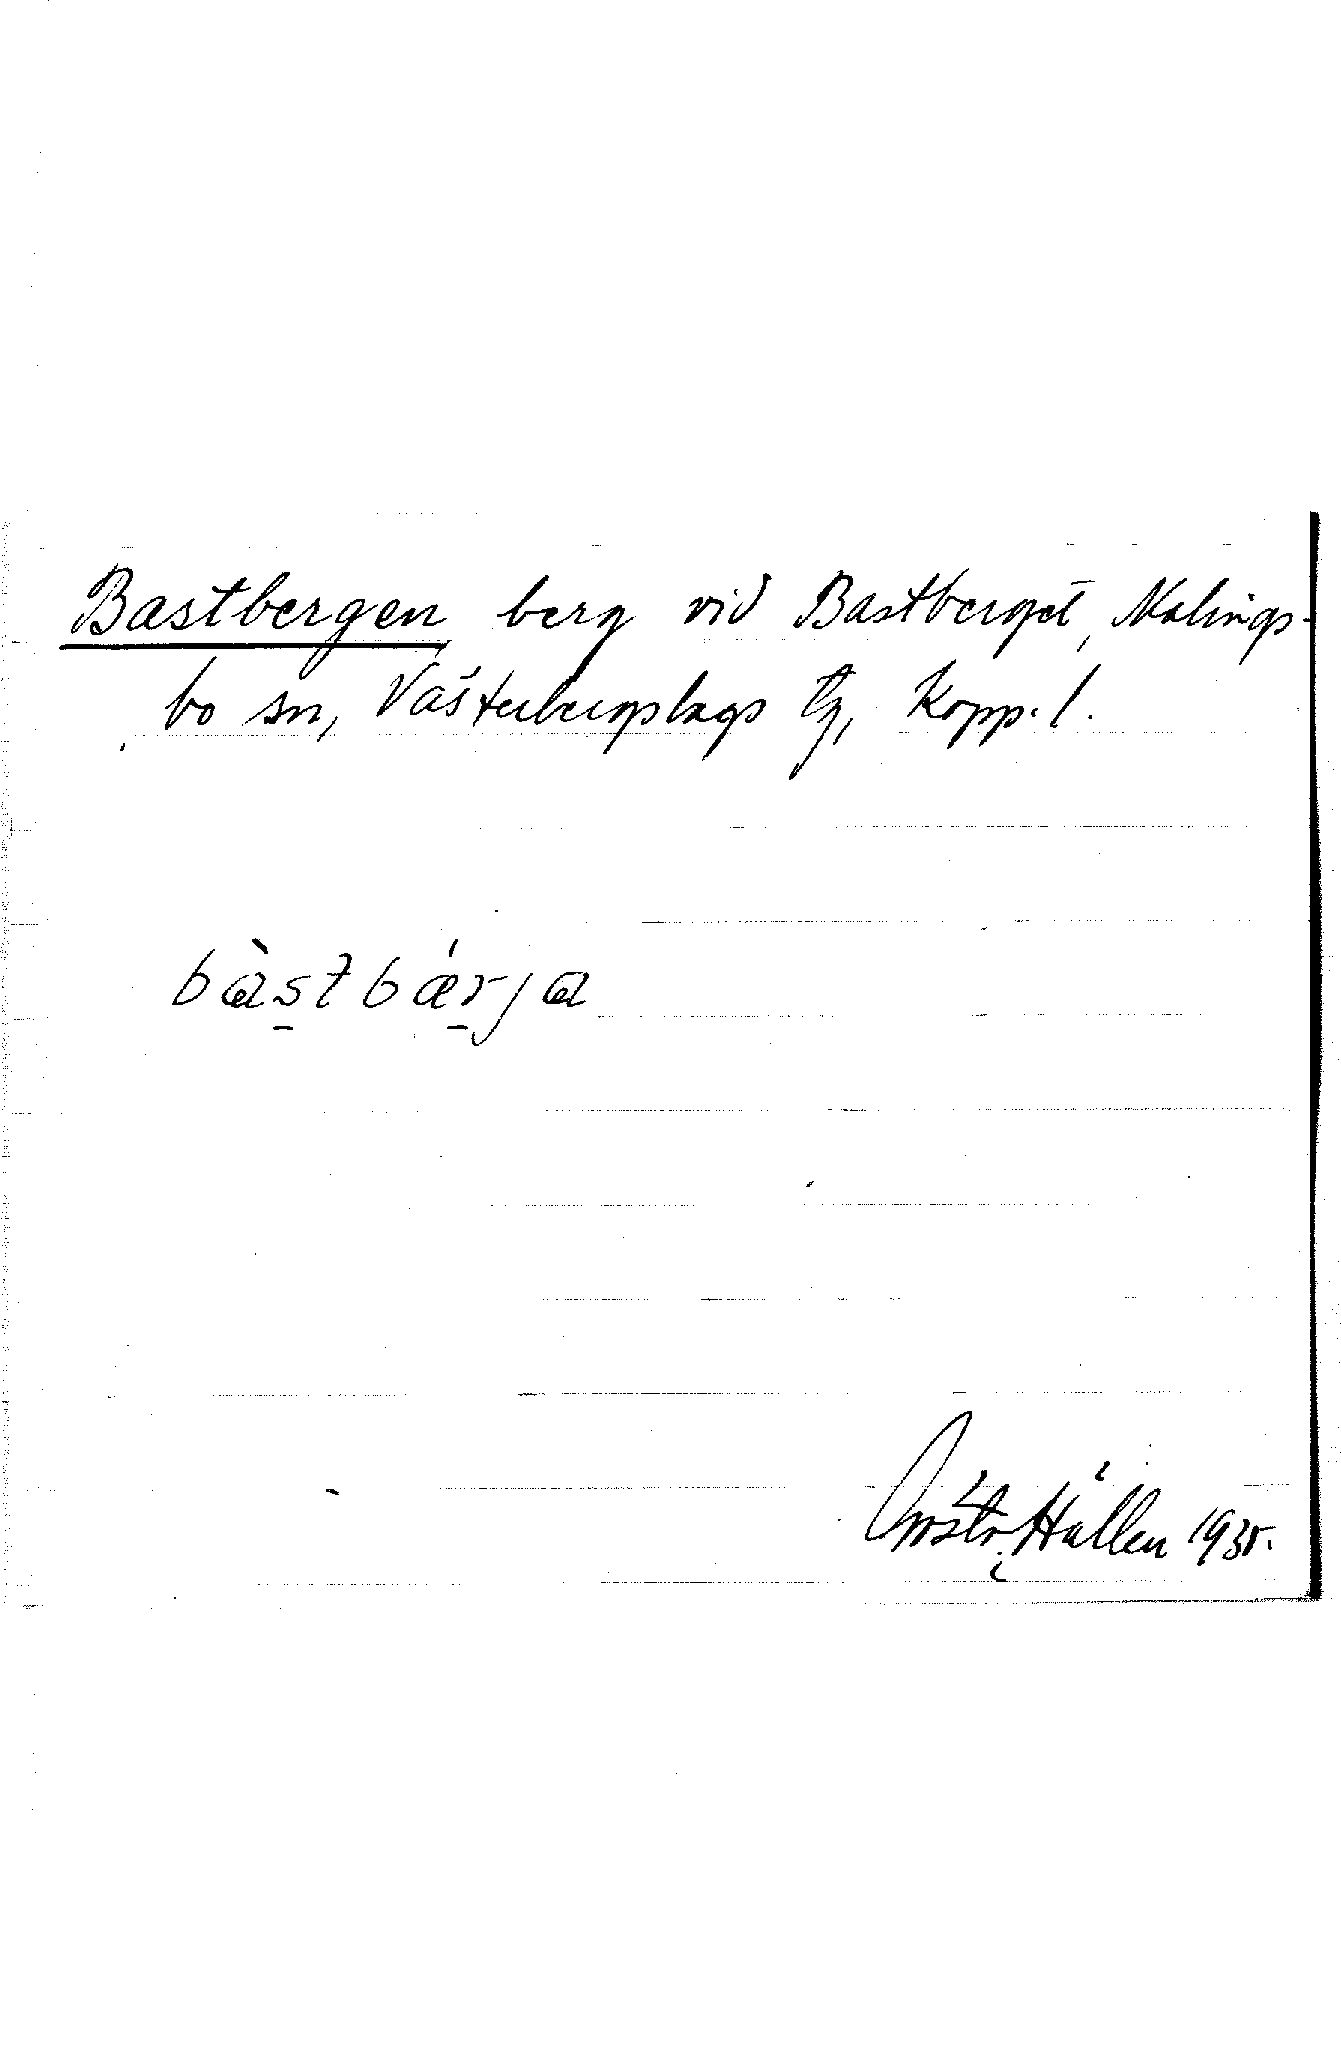 Bastbergen berg vid Bastberget, Malings-
bo sn, Västerbergslags tg, Kopp. l.
bàs̠tbǽr̠ja
Gösta Hallen 1935.